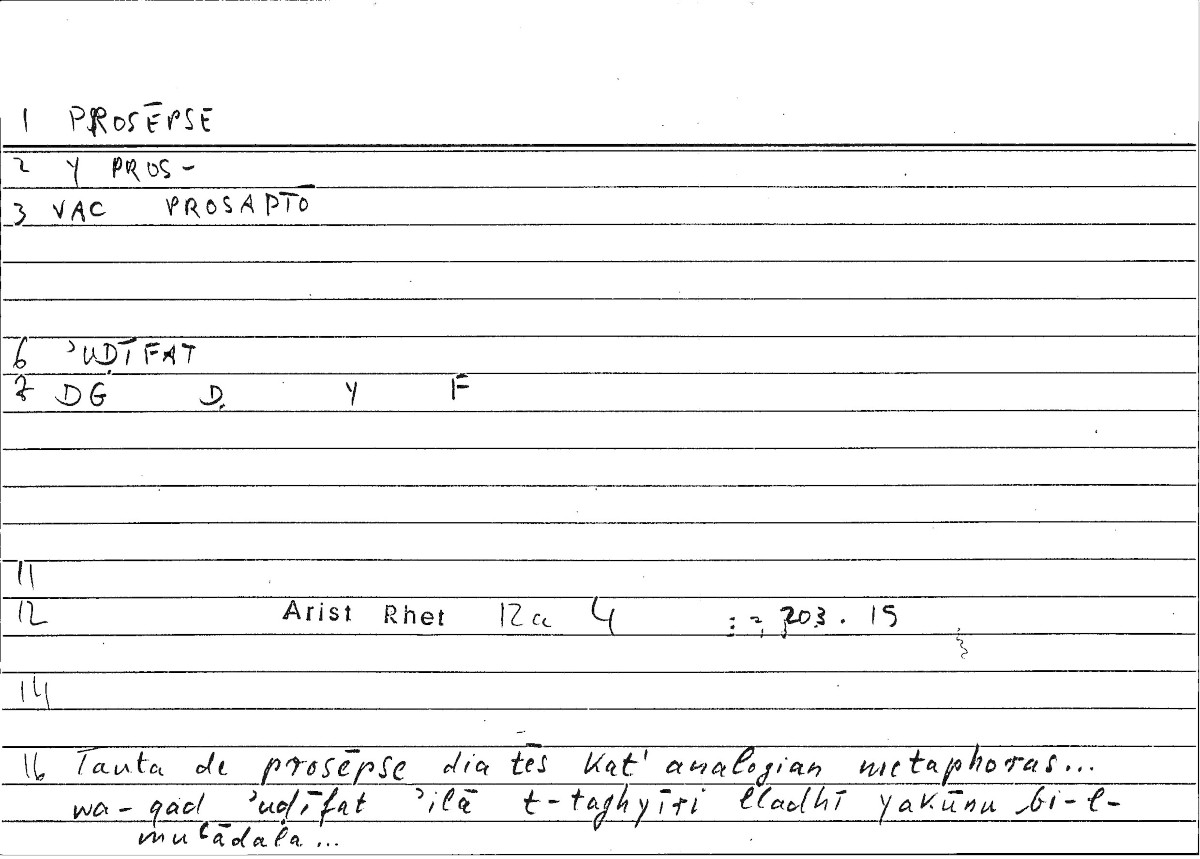 1 PROSĒPSE
2 Y PROS-
3 VAC PROSAPTŌ
6 ʾUḌĪFAT
7 DG Ḍ Y F
11
12 Arist Rhet 12a 4 203.15
14
16 Tauta de prosēpse dia tēs kat' analogian metaphoras...
wa-qad ʾuḍīfat ʾilā t-taghyīri lladhī yakūnu bi-l-
muʿādala...